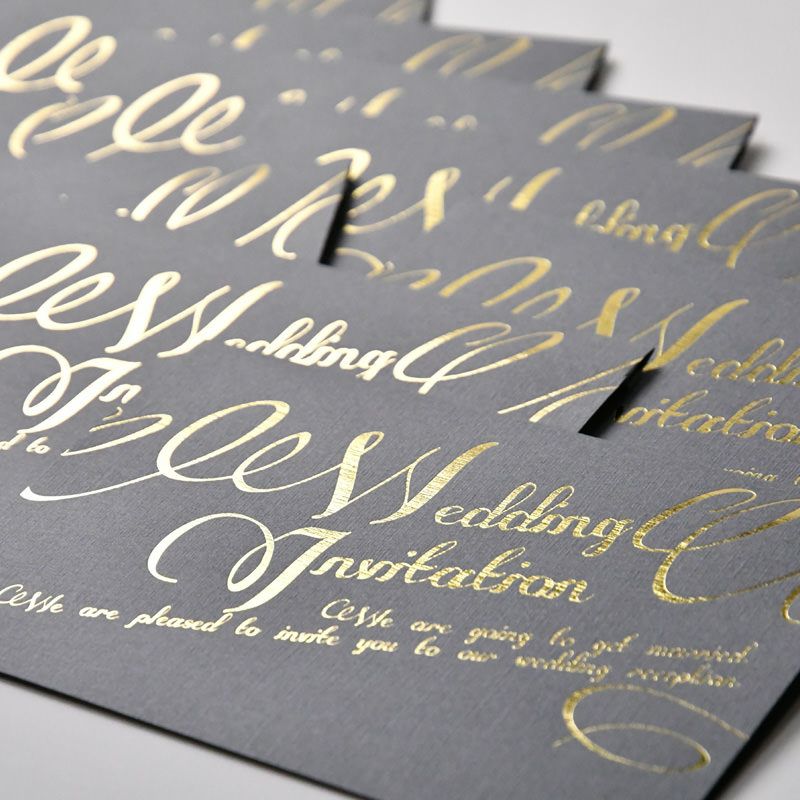 Wedding
Invitation
We are going to get married.
We are pleased to invite you to our wedding reception.